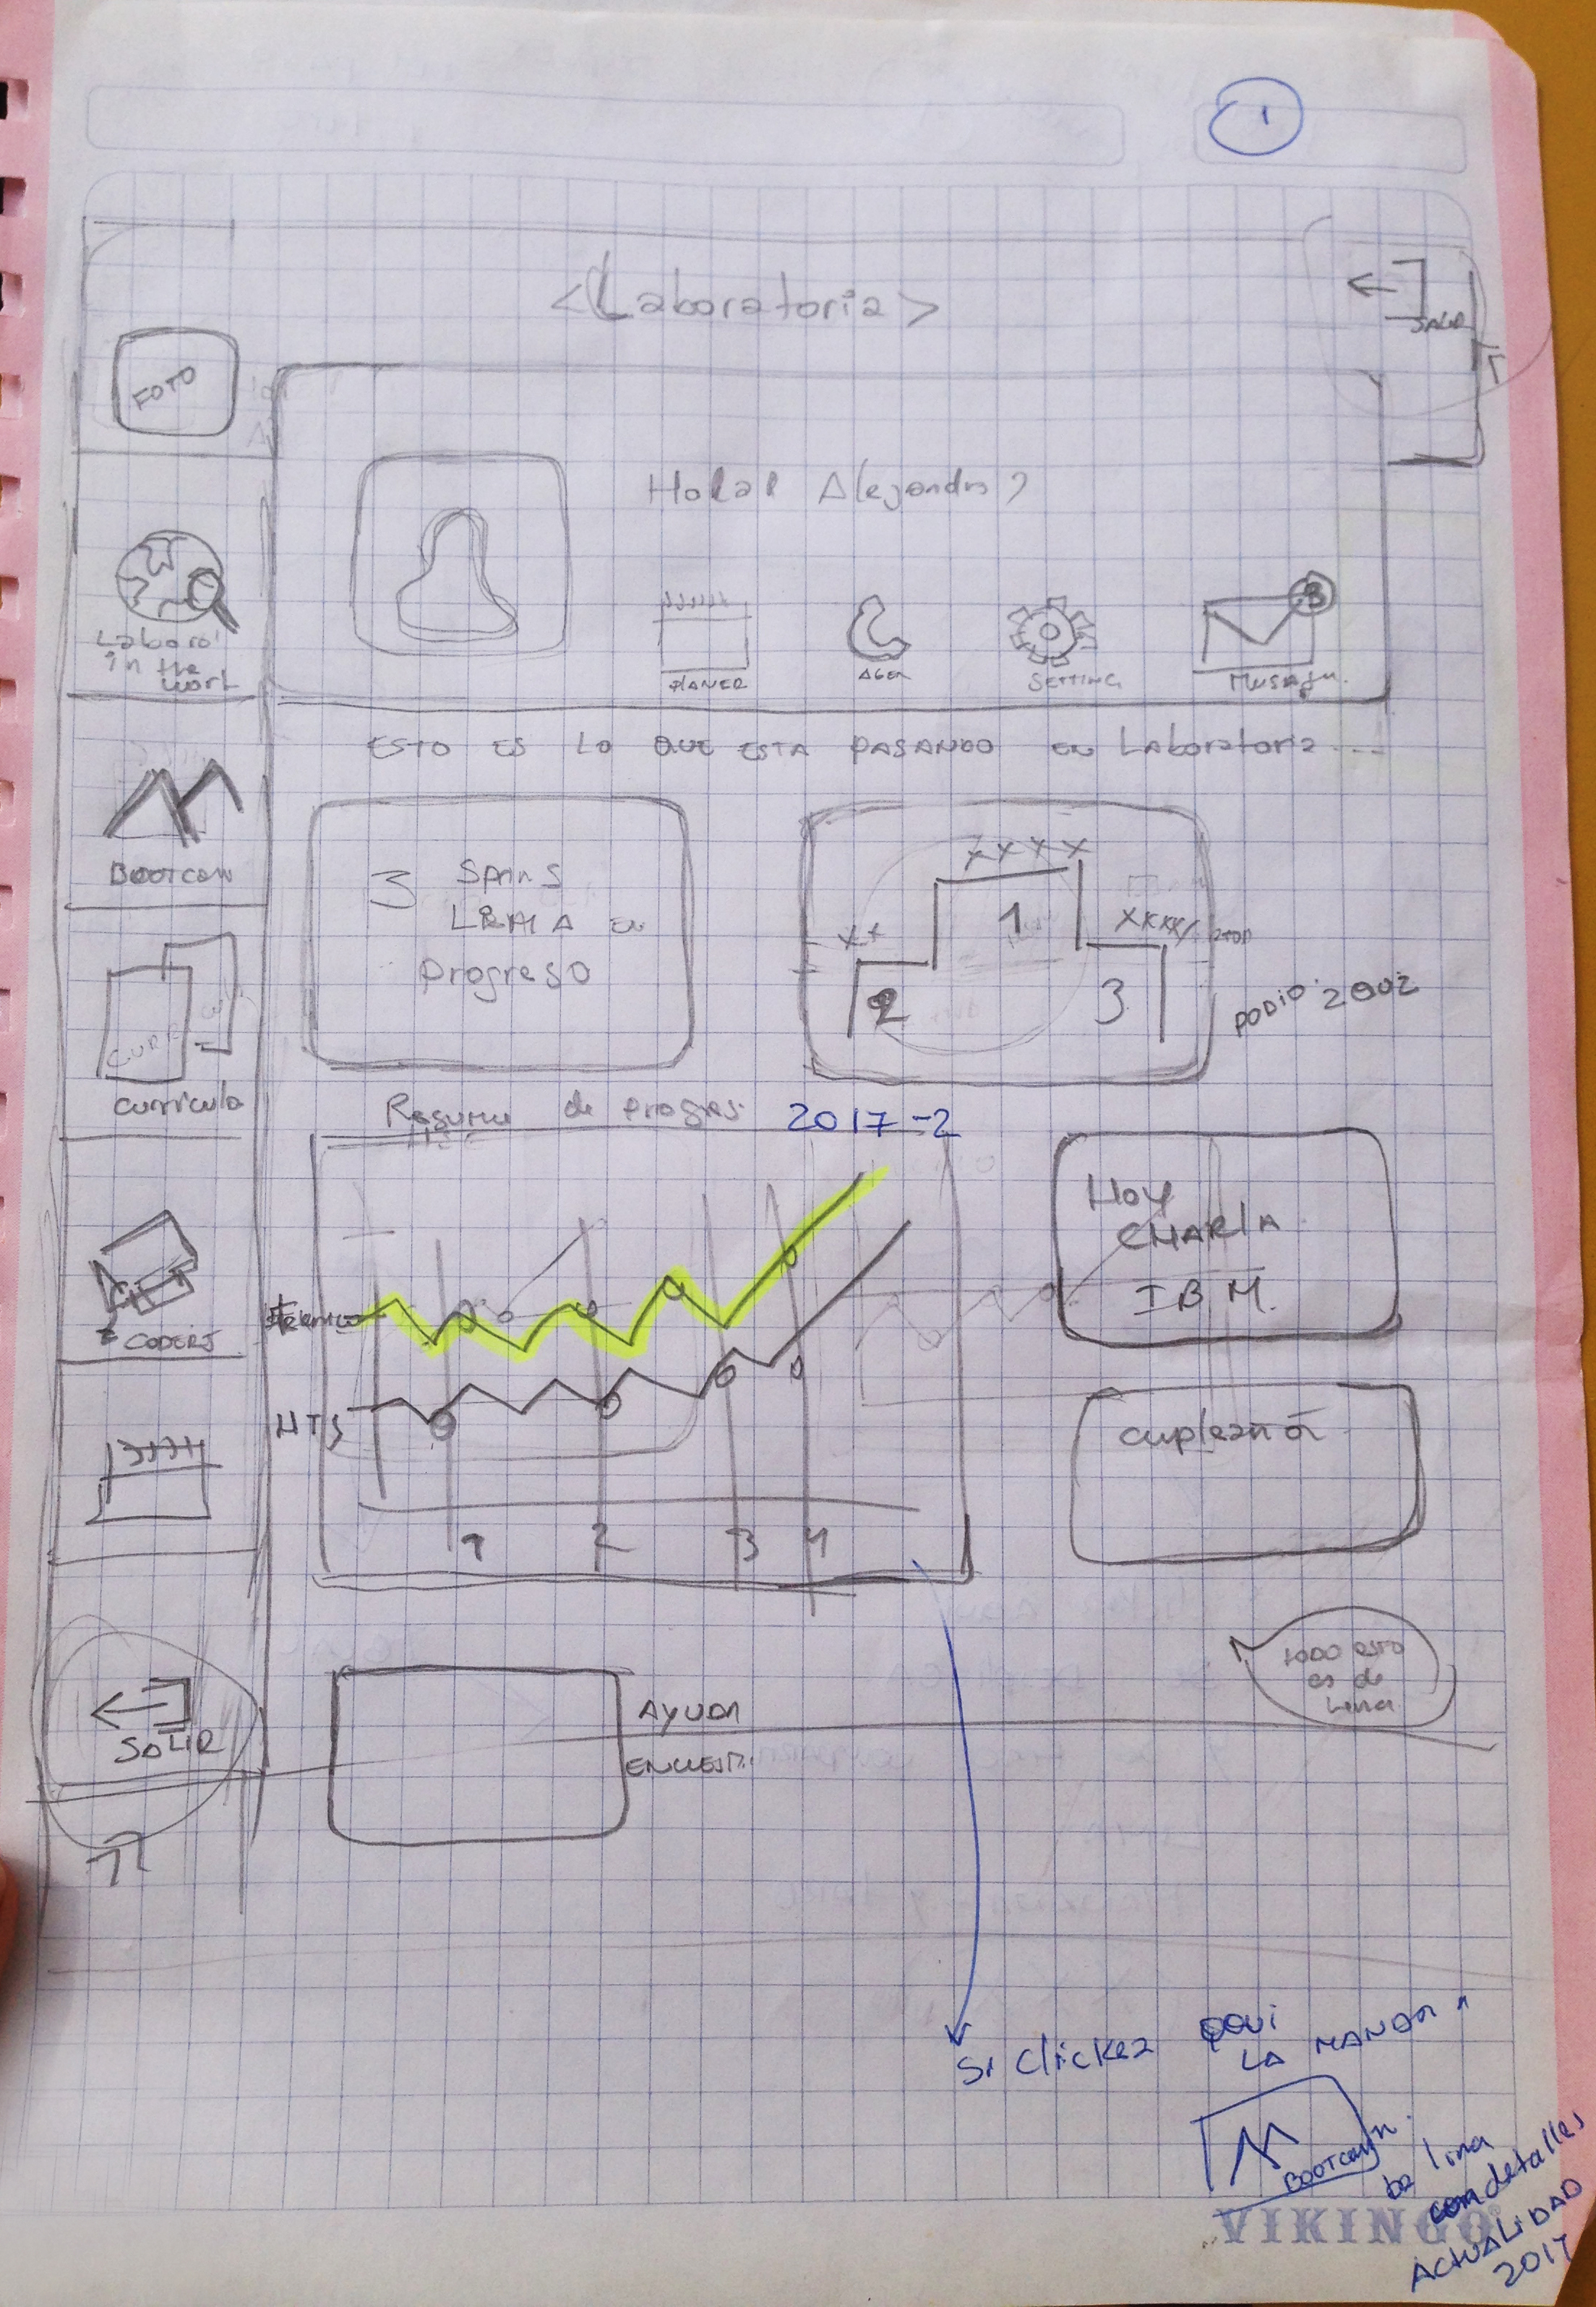 1
<Laboratoria>
SALIR
FOTO
Hola! Alejandra
3
PLANER
SETTING
Laboro'
in the
work
ESTO ES LO QUE ESTA PASANDO EN Laboratoria ...
BOOTCAM
3 Sprins
LIMA en
Progreso
XXXX
XX
1
XXXX
2
3
PODIO 2002
CURRI
Curricula
Resume de progres. 2017-2
Hoy
CHARLA
IBM.
CODERS
HTS
cupleaños
1 2 3 4
TODO ESTO
es de
Lima
SALIR
AYUDA
ENCUEST.
Si clickea aqui
LA MANDA a
BOOTCAMP
de lima
con detalles
ACTUALIDAD
2017
VIKINGO